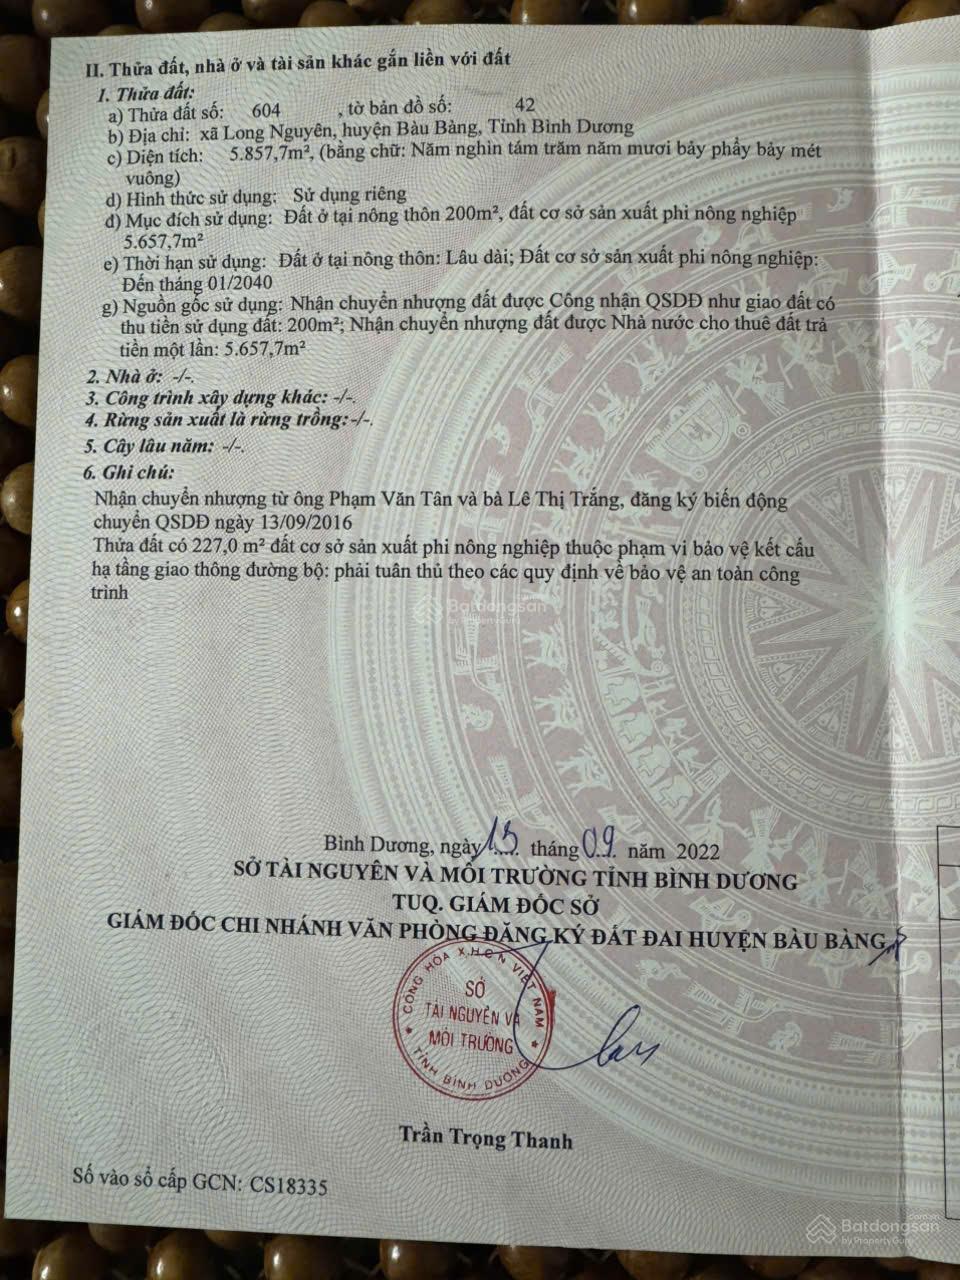 II. Thửa đất, nhà ở và tài sản khác gắn liền với đất
1. Thửa đất:
a) Thửa đất số: 604 , tờ bản đồ số: 42
b) Địa chỉ: xã Long Nguyên, huyện Bàu Bàng, Tỉnh Bình Dương
c) Diện tích: 5.857,7m², (bằng chữ: Năm nghìn tám trăm năm mươi bảy phẩy bảy mét
vuông)
d) Hình thức sử dụng: Sử dụng riêng
đ) Mục đích sử dụng: Đất ở tại nông thôn 200m², đất cơ sở sản xuất phi nông nghiệp
5.657,7m²
e) Thời hạn sử dụng: Đất ở tại nông thôn: Lâu dài; Đất cơ sở sản xuất phi nông nghiệp:
Đến tháng 01/2040
g) Nguồn gốc sử dụng: Nhận chuyển nhượng đất được Công nhận QSDĐ như giao đất có
thu tiền sử dụng đất: 200m²; Nhận chuyển nhượng đất được Nhà nước cho thuê đất trả
tiền một lần: 5.657,7m²
2. Nhà ở: -/-.
3. Công trình xây dựng khác: -/-.
4. Rừng sản xuất là rừng trồng: -/-.
5. Cây lâu năm: -/-.
6. Ghi chú:
Nhận chuyển nhượng từ ông Phạm Văn Tân và bà Lê Thị Trắng, đăng ký biến động
chuyển QSDĐ ngày 13/09/2016
Thửa đất có 227,0 m² đất cơ sở sản xuất phi nông nghiệp thuộc phạm vi bảo vệ kết cấu
hạ tầng giao thông đường bộ: phải tuân thủ theo các quy định về bảo vệ an toàn công
trình
Batdongsan
by PropertyGuru
Bình Dương, ngày 13 tháng 09 năm 2022
SỞ TÀI NGUYÊN VÀ MÔI TRƯỜNG TỈNH BÌNH DƯƠNG
TUQ. GIÁM ĐỐC SỞ
GIÁM ĐỐC CHI NHÁNH VĂN PHÒNG ĐĂNG KÝ ĐẤT ĐAI HUYỆN BÀU BÀNG
CỘNG HÒA X.H.C.N VIỆT NAM
SỞ
TÀI NGUYÊN VÀ
MÔI TRƯỜNG
TỈNH BÌNH DƯƠNG
Trần Trọng Thanh
Số vào sổ cấp GCN: CS18335
.com.vn
Batdongsan
by PropertyGuru